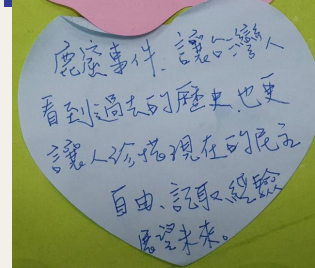 鹿窟事件、讓台灣人
看到過去的歷史也更
讓人珍惜現在的民主
自由、記取經驗
展望未來。